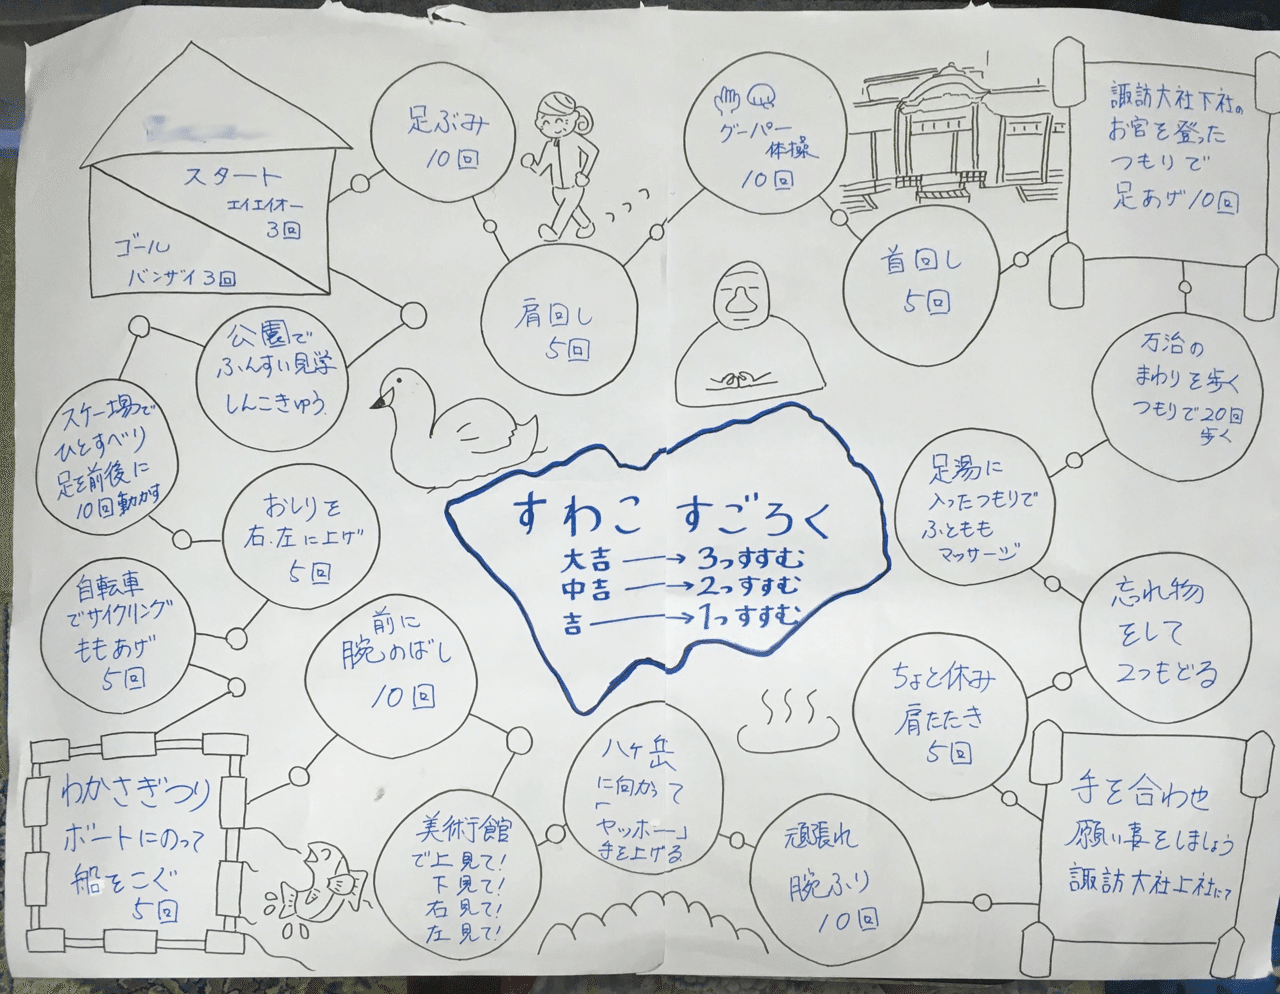 スタート
エイエイオー
3回
ゴール
バンザイ3回
足ぶみ
10回
肩回し
5回
グーパー
体操
10回
首回し
5回
諏訪大社下社の
お宮を登った
つもりで
足あげ10回
万治の
まわりを歩く
つもりで20回
歩く
足湯に
入ったつもりで
ふともも
マッサージ
忘れ物
をして
2つもどる
ちょと休み
肩たたき
5回
手を合わせ
願い事をしましょう
諏訪大社上社にて
頑張れ
腕ふり
10回
八ヶ岳
に向かって
「ヤッホー」
手を上げる
美術館
で上見て!
下見て!
右見て!
左見て!
前に
腕のばし
10回
わかさぎつり
ボートにのって
船をこぐ
5回
自転車
でサイクリング
ももあげ
5回
おしりを
右.左に上げ
5回
スケート場で
ひとすべり
足を前後に
10回動かす
公園で
ふんすい見学
しんこきゅう
すわこ すごろく
大吉→3っすすむ
中吉→2っすすむ
吉→1っすすむ